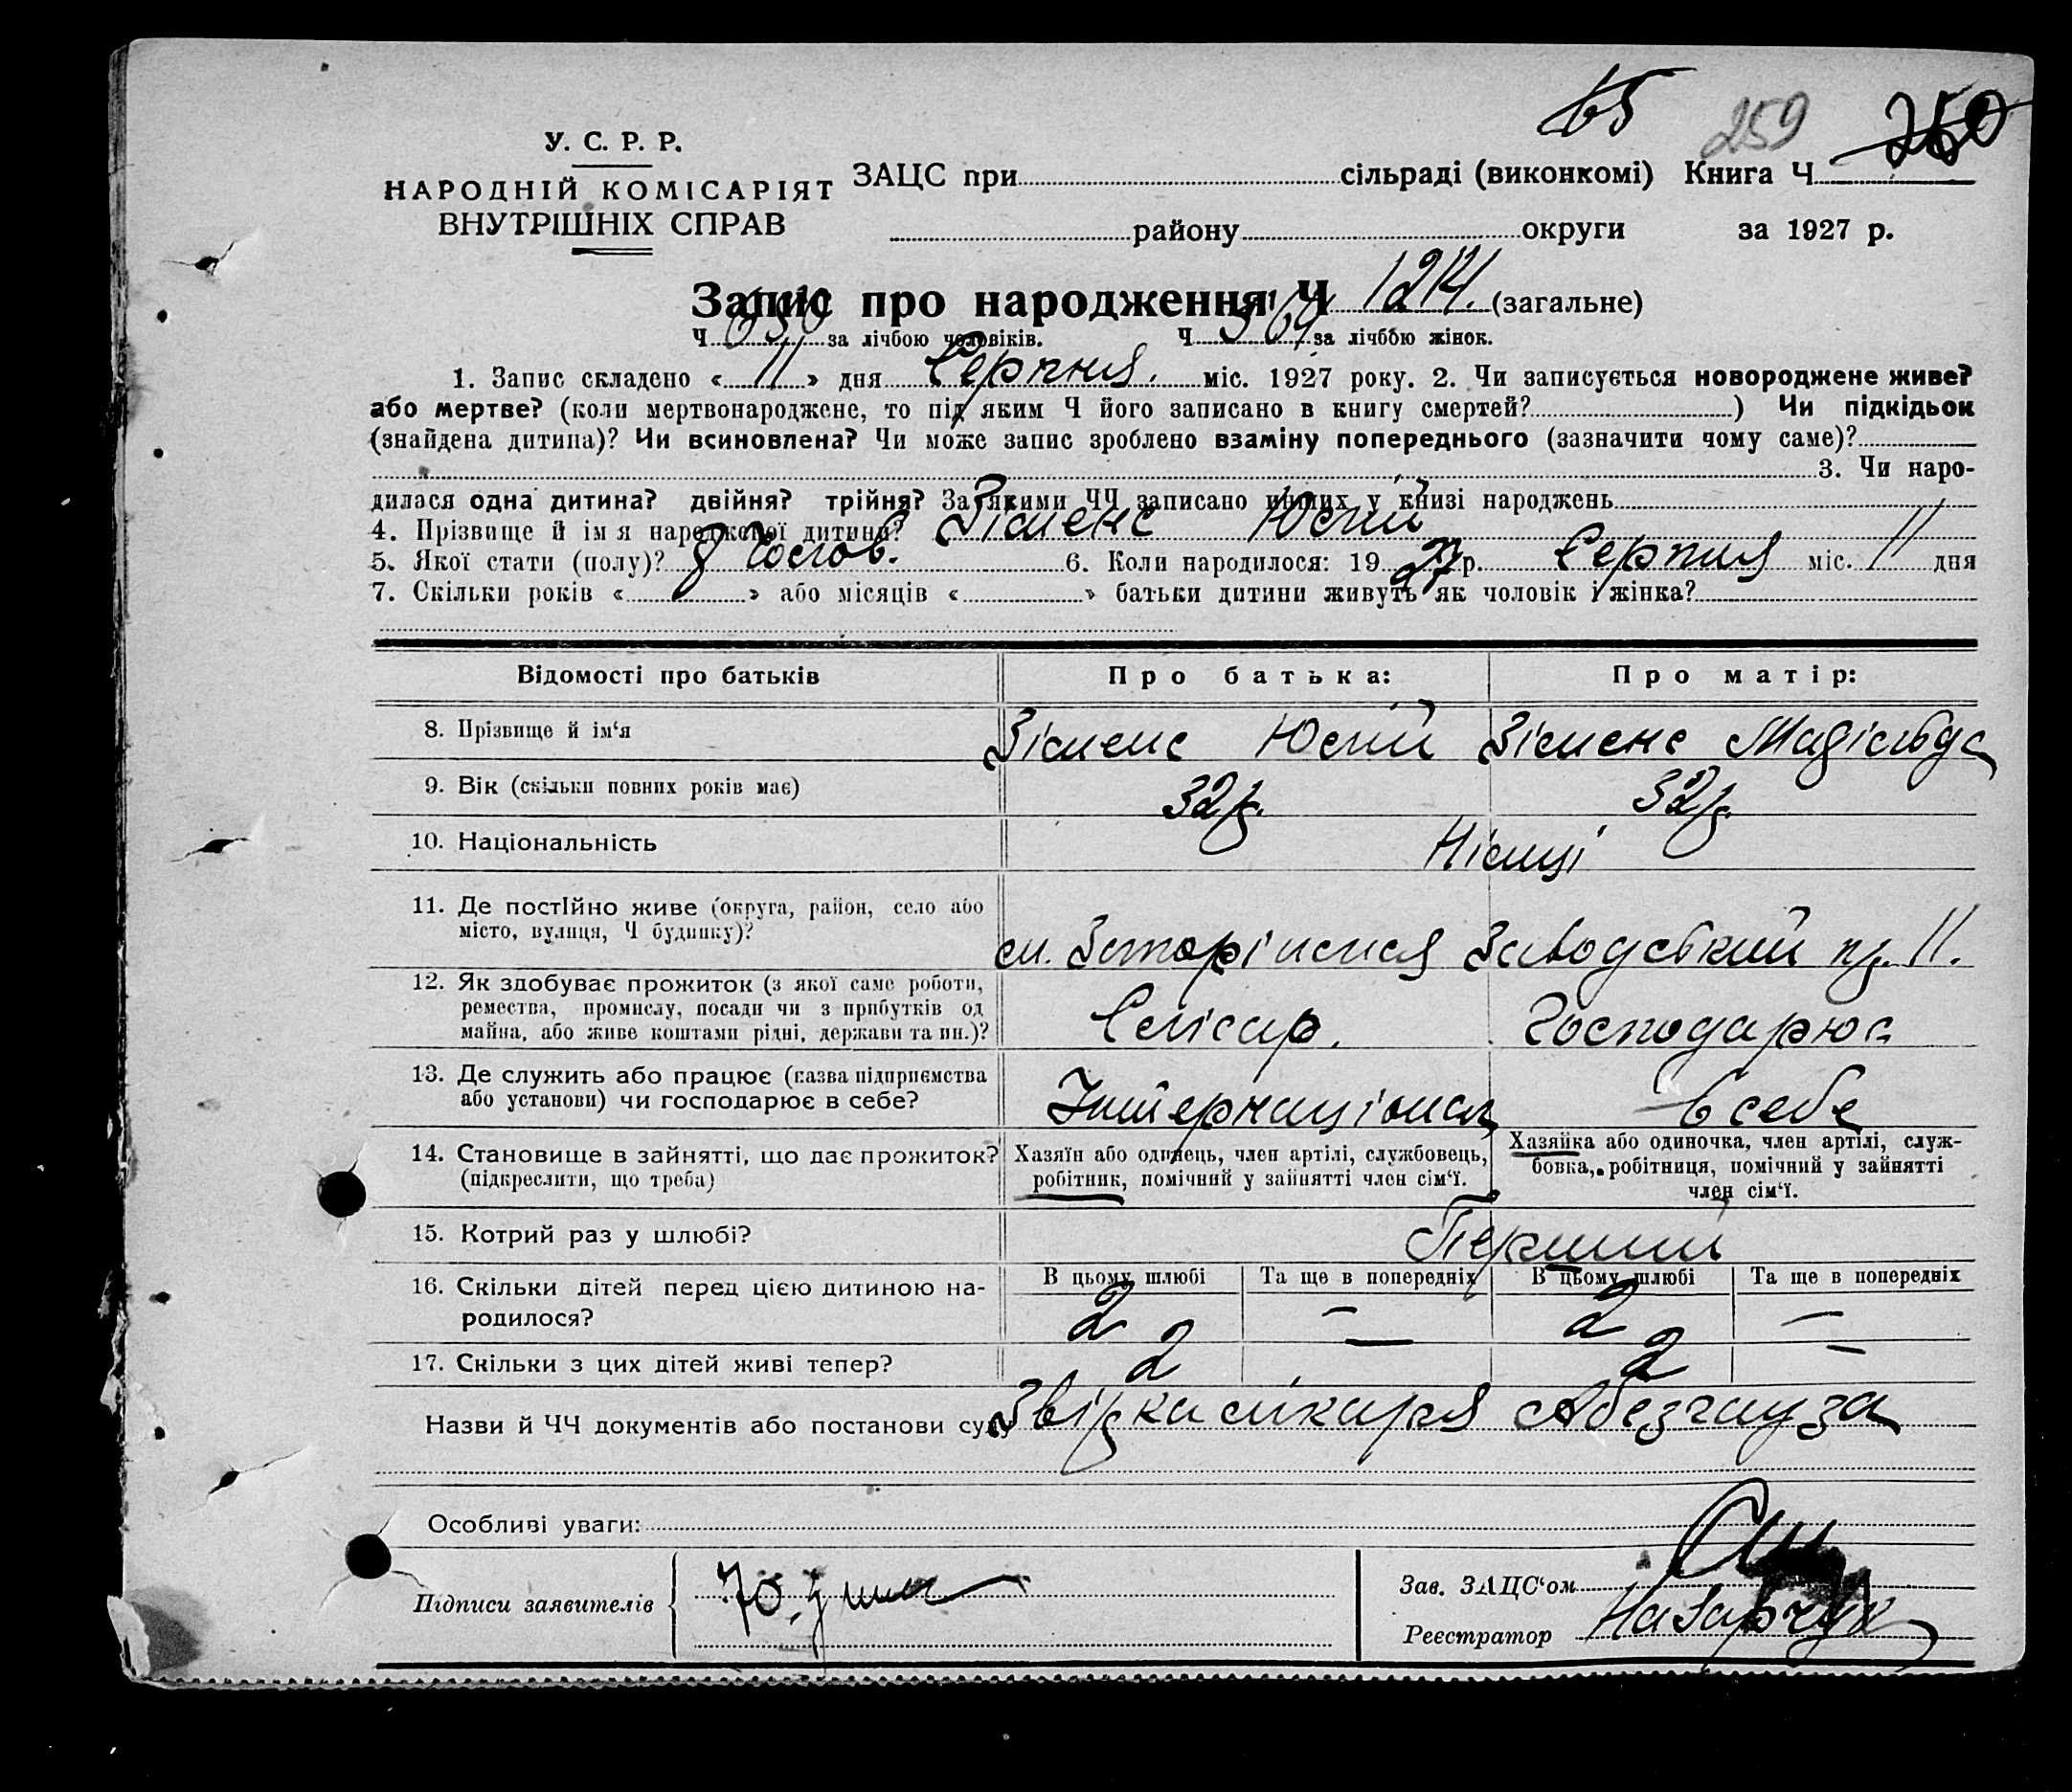 65 259 260
У. С. Р. Р.
НАРОДНІЙ КОМІСАРІЯТ
ВНУТРІШНІХ СПРАВ
ЗАЦС при сільраді (виконкомі) Книга Ч
району округи за 1927 р.
Запис про народження Ч 1214. (загальне)
Ч за лічбою чоловіків. Ч за лічбою жінок.
1. Запис складено « 11 » дня Серпня. міс. 1927 року. 2. Чи записується новороджене живе?
або мертве? (коли мертвонароджене, то під яким Ч його записано в книгу смертей? ) Чи підкідьок
(знайдена дитина)? Чи всиновлена? Чи може запис зроблено взаміну попереднього (зазначити чому саме)?
3. Чи наро-
дилася одна дитина? двійня? трійня? За якими ЧЧ записано инших у книзі народжень
4. Прізвище й ім я народженої дитини? Зіменс Юлій
5. Якої стати (полу)? Чолов. 6. Коли народилося: 19 27 р. Серпня міс. 11 дня
7. Скільки років « » або місяців « » батьки дитини живуть як чоловік і жінка?
Відомості про батьків Про батька: Про матір:
8. Прізвище й ім‘я Зіменс Юлій Зіменс Матільда
9. Вік (скільки повних років має) 32 р. 32 р.
10. Національність Німці
11. Де постійно живе (округа, район, село або
місто, вулиця, Ч будинку)? м. Запоріжжя Заводський пр. 11.
12. Як здобуває прожиток (з якої саме роботи,
ремества, промислу, посади чи з прибутків од
майна, або живе коштами рідні, держави та ин.)? Слісар. Господарює
13. Де служить або працює (назва підприємства
або установи) чи господарює в себе? Інтернаціонал в себе
14. Становище в зайнятті, що дає прожиток?
(підкреслити, що треба)
Хазяїн або одинець, член артілі, службовець,
робітник, помічний у зайнятті член сім‘ї.
Хазяйка або одиночка, член артілі, служ-
бовка, робітниця, помічний у зайнятті
член сім‘ї.
15. Котрий раз у шлюбі? Перший
В цьому шлюбі Та ще в попередніх В цьому шлюбі Та ще в попередніх
16. Скільки дітей перед цією дитиною на-
родилося? 2 — 2 —
17. Скільки з цих дітей живі тепер? 2 — 2 —
Назви й ЧЧ документів або постанови суду лікаря Абезгауза
Особливі уваги:
Підписи заявителів
Зав. ЗАЦС‘ом
Реєстратор Назарчук